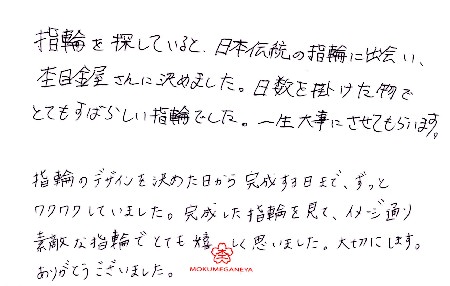 指輪を探していると、日本伝統の指輪に出会い、
杢目金屋さんに決めました。日数を掛けた物で
とてもすばらしい指輪でした。一生大事にさせてもらいます。
指輪のデザインを決めた日から完成する日まで、ずっと
ワクワクしていました。完成した指輪を見て、イメージ通り
素敵な指輪でとても嬉しく思いました。大切にします。
ありがとうございました。
MOKUMEGANEYA